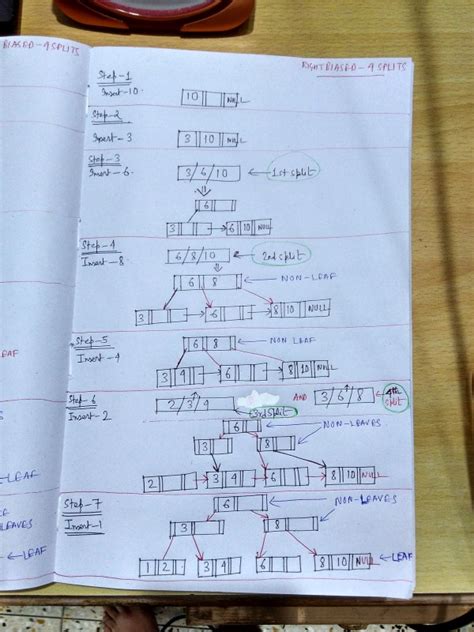 BIASED-4 SPLITS
RIGHT BIASED - 4 SPLITS
Step-1
Insert-10.
10 NULL
Step-2
Insert-3
3 10 NULL
Step-3
Insert-6.
3/6/10 1st split
6
3 6 10 NULL
Step-4
Insert-8
6/8/10 2nd split
6 8 NON-LEAF
3 6 8 10 NULL
Step-5
Insert-4
6 8 NON LEAF
3 4 6 8 10 NULL
Step 6
Insert-2
2/3/4 AND 3/6/8 4th split
3rd split
6 NON-LEAVES
3 8
2 3 4 6 8 10 NULL
Step-7
Insert-1
6 NON-LEAVES
3 8
1 2 3 4 6 8 10 NULL LEAF
EAF
-LEAF
LEAVES
LEAF